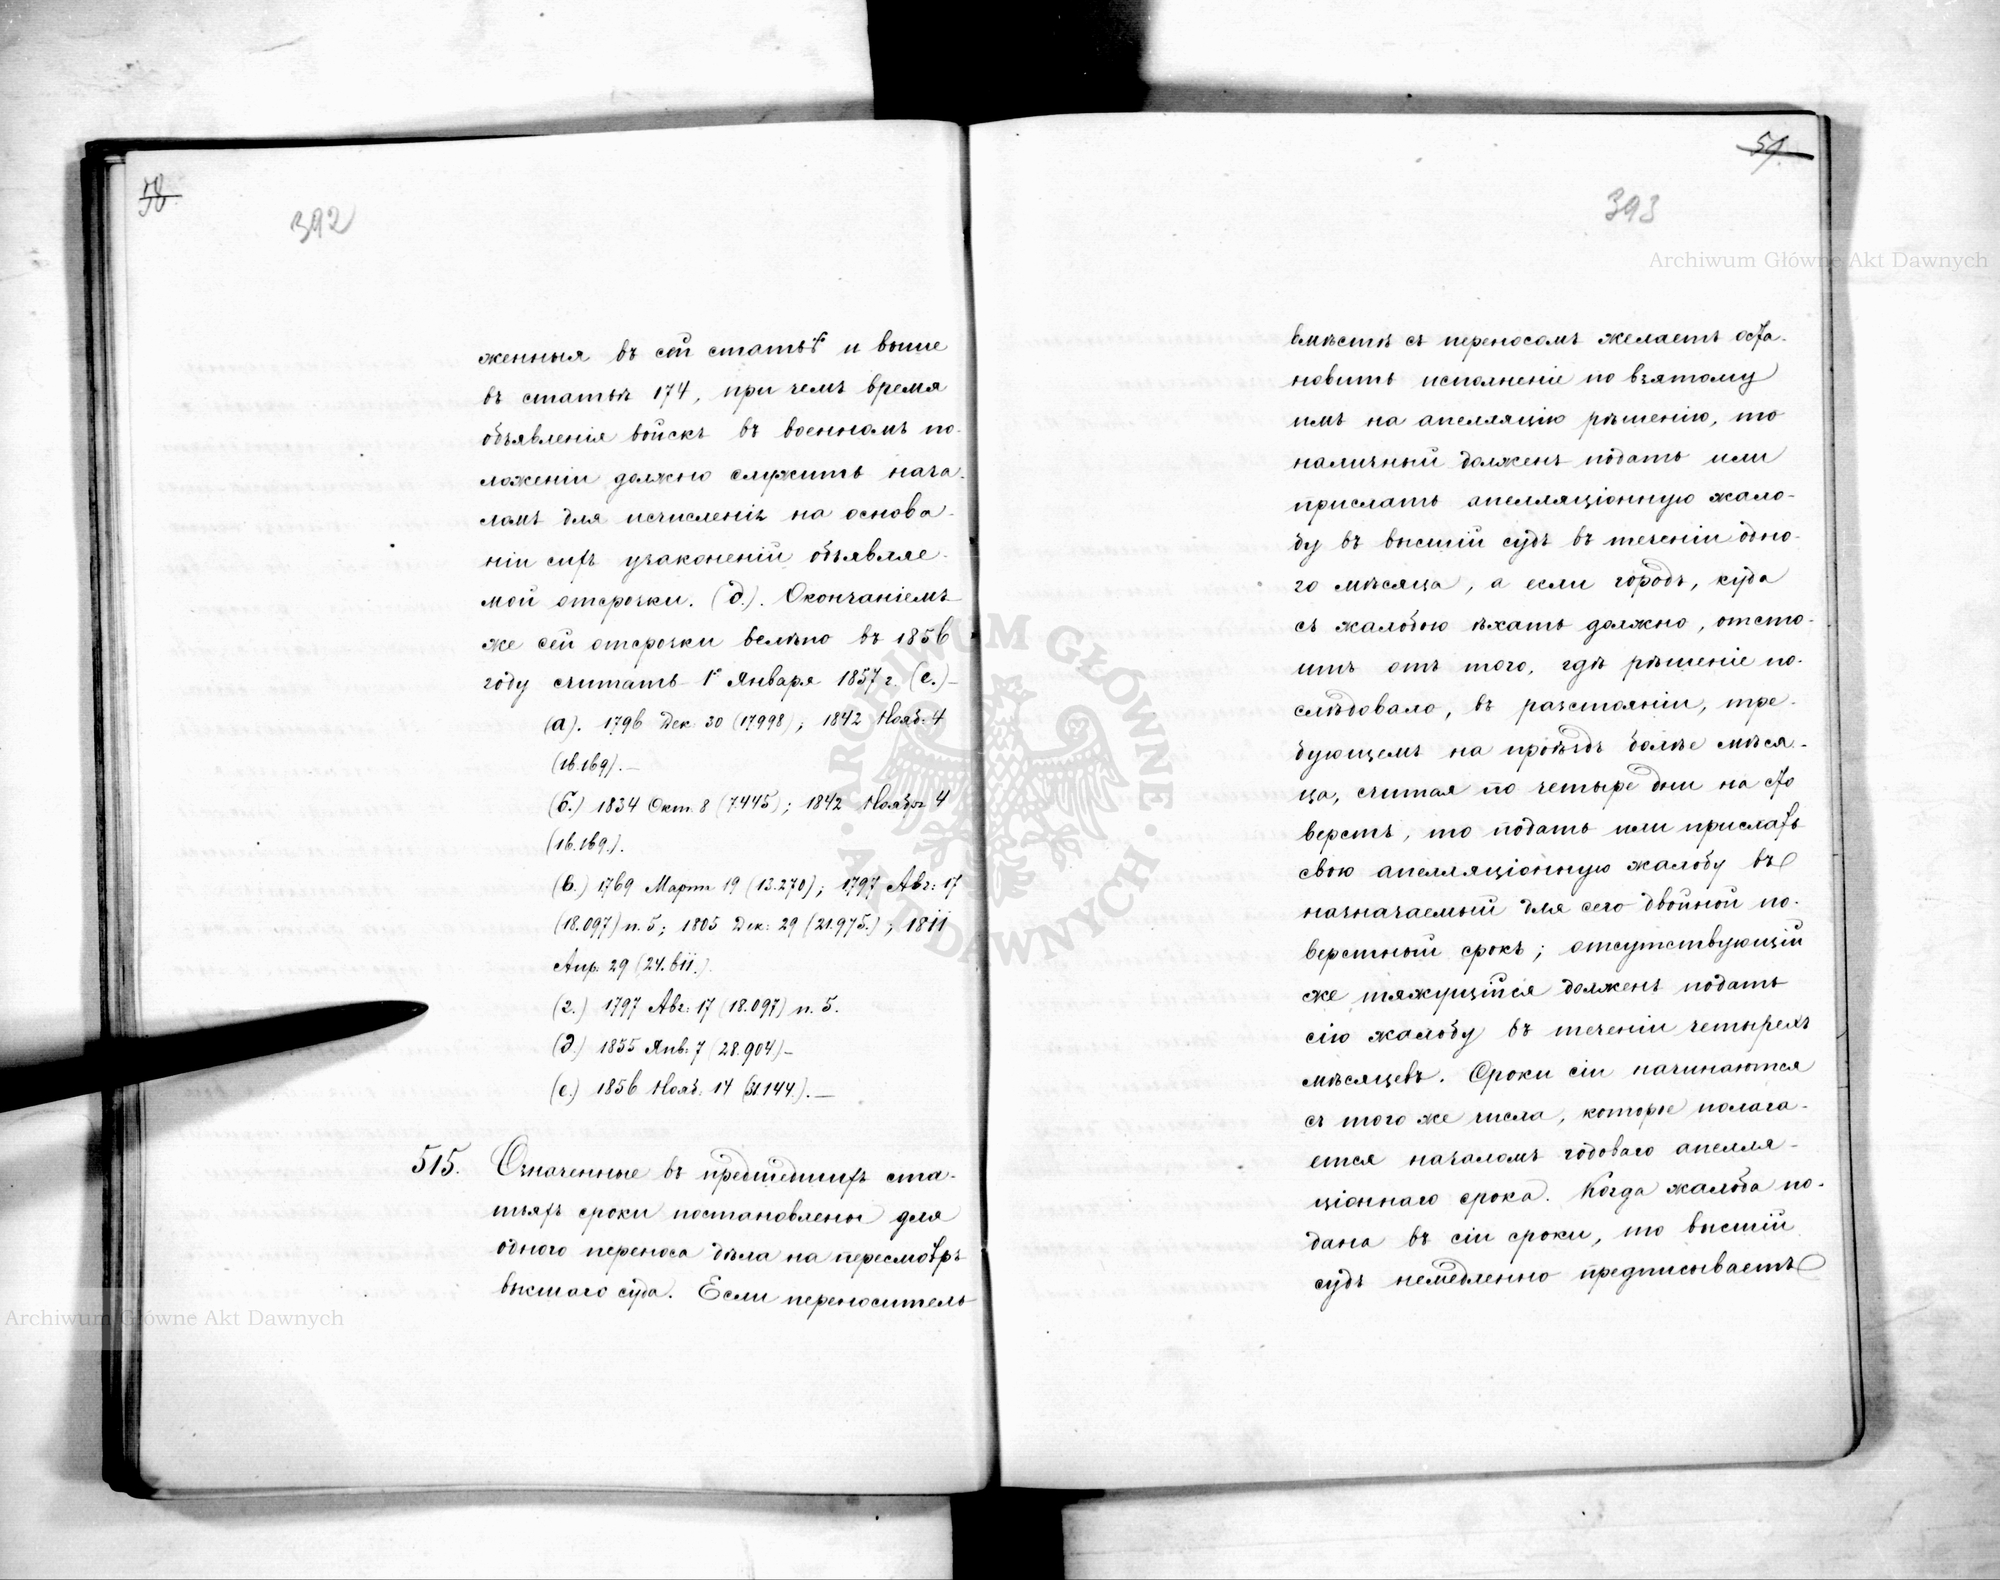 58.
392
женныя въ сей статьѣ и выше
въ статьѣ 174, при чемъ время
объявленія войскъ въ военномъ по-
ложеніи должно служить нача-
ломъ для исчисленія на основа-
ніи сихъ узаконеній объявляе-
мой отсрочки. (д.). Окончаніемъ
же сей отсрочки велѣно въ 1856
году считать 1е Января 1857 г. (е.)—
(а). 1796 Дек. 30 (17998); 1842 Нояб: 4
(16.169).—
(б.) 1834 Окт. 8 (7.445); 1842 Ноября 4
(16.169.).
(в.) 1769 Марта 19 (13.270); 1797 Авг: 17
(18.097) п. 5; 1805 Дек: 29 (21.975.); 1811
Апр. 29 (24.611.).
(г.) 1797 Авг: 17 (18.097) п. 5.
(д.) 1855 Янв: 7 (28.904)—
(е.) 1856 Нояб: 14 (31.144.).—
515. Означенные въ предшедшихъ ста-
тьяхъ сроки постановлены для
одного переноса дѣла на пересмотръ
высшаго суда. Если переноситель
59.
393
вмѣстѣ съ переносомъ желаетъ оста-
новить исполненіе по взятому
имъ на апелляцію рѣшенію, то
наличный долженъ подать или
прислать апелляціонную жало-
бу въ высшій судъ въ теченіи одно-
го мѣсяца, а если городъ, куда
съ жалобою ѣхать должно, отсто-
итъ отъ того, гдѣ рѣшеніе по-
слѣдовало, въ разстояніи, тре-
бующемъ на проѣздъ болѣе мѣся-
ца, считая по четыре дни на сто
верстъ, то подать или прислать
свою апелляціонную жалобу въ
назначаемый для сего двойной по-
верстный срокъ; отсутствующій
же тяжущійся долженъ подать
сію жалобу въ теченіи четырехъ
мѣсяцевъ. Сроки сіи начинаются
съ того же числа, которое полага-
ется началомъ годоваго апелля-
ціоннаго срока. Когда жалоба по-
дана въ сіи сроки, то высшій
судъ немедленно предписываетъ
Archiwum Główne Akt Dawnych
Archiwum Główne Akt Dawnych
ARCHIWUM GŁÓWNE · AKT DAWNYCH ·